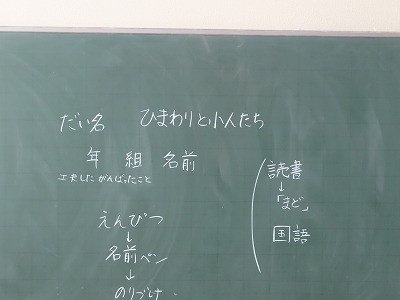 だい名 ひまわりと小人たち
年 組 名前
工夫したがんばったこと
えんぴつ
↓
名前ペン
↓
のりづけ
読書
↓
「まど」
国語